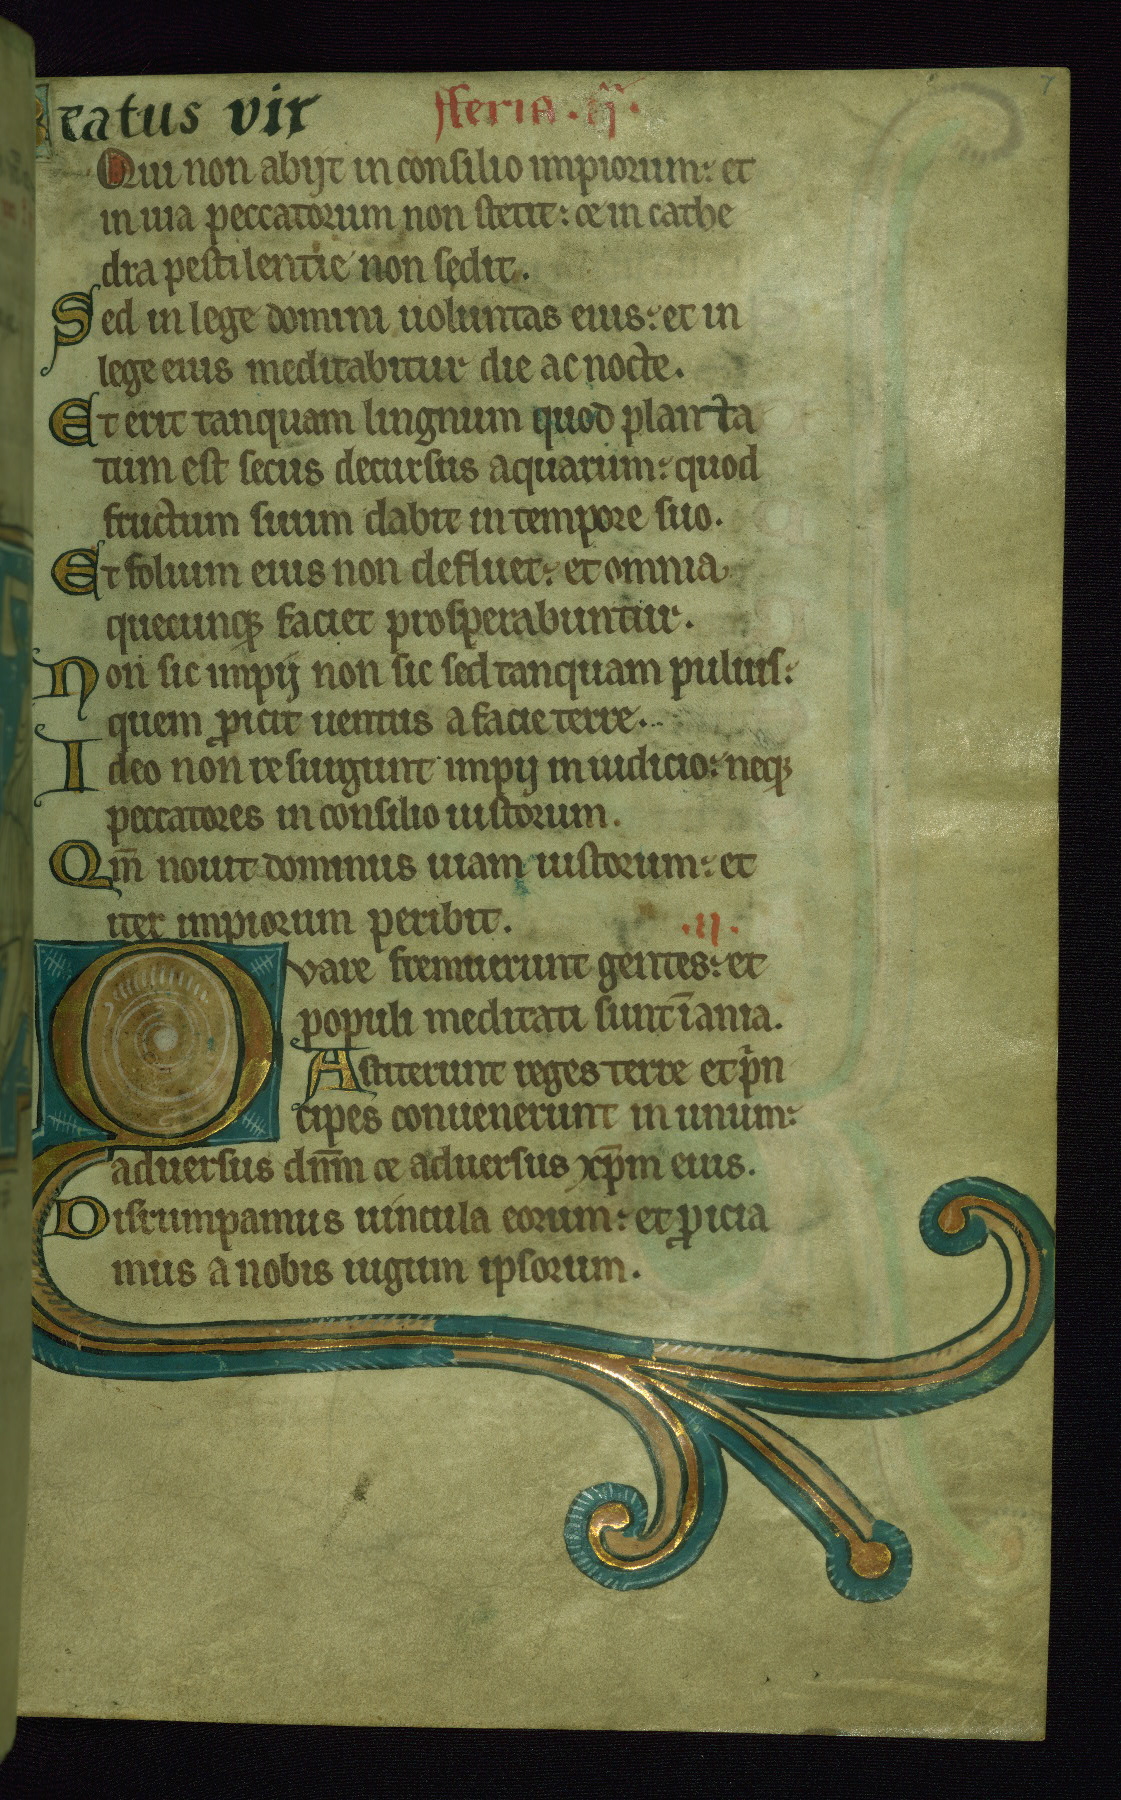 Beatus vir fferia .ij.
Qui non abijt in consilio impiorum: et
in uia peccatorum non stetit: et in cathe
dra pestilentie non sedit.
Sed in lege domini uoluntas eius: et in
lege eius meditabitur die ac nocte.
Et erit tanquam lingnum quod planta
tum est secus decursus aquarum: quod
fructum suum dabit in tempore suo.
Et folium eius non defluet: et omnia
quecunqꝫ faciet prosperabuntur.
Non sic impij non sic sed tanquam puluis:
quem ꝓicit uentus a facie terre.
Ideo non resurgunt impij in iudicio: neqꝫ
peccatores in consilio iustorum.
Qm̄ nouit dominus uiam iustorum: et
iter impiorum peribit. .ij.
Quare fremuerunt gentes: et
populi meditati sunt īania.
Astiterunt reges terre et p̄in
cipes conuenerunt in unum:
aduersus dn̄m et aduersus xp̄m eius.
Disrumpamus uincula eorum: et ꝓicia
mus a nobis iugum ipsorum.
7